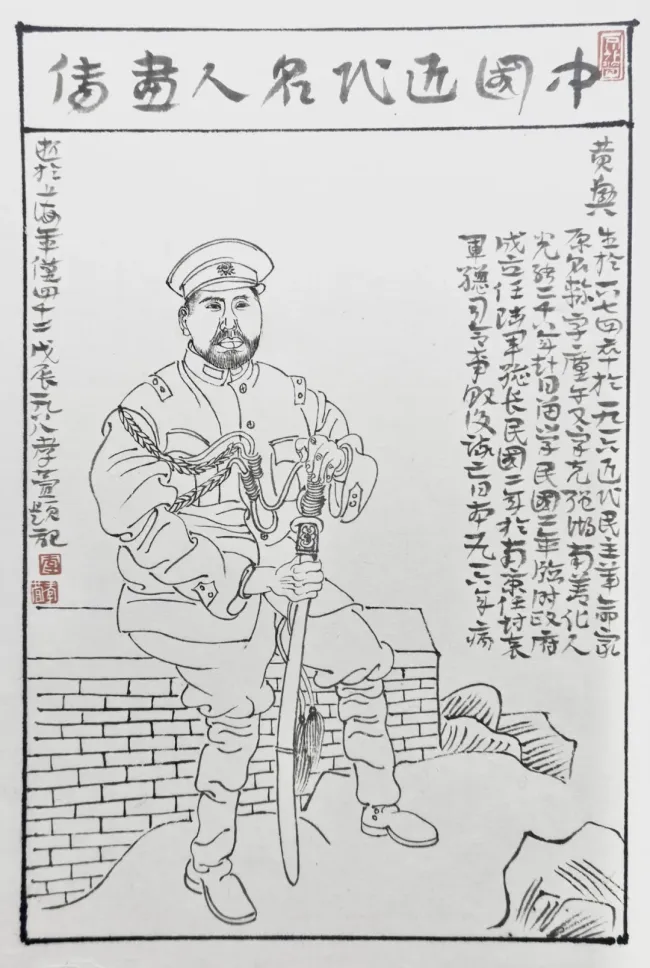 中國近代名人畫傳
黄興
生於一八七四卒於一九一六近代民主革命家
原名軫字廑午又字克强湖南善化人
光緒二十八年赴日留学民國元年臨时政府
成立任陆军總长民國二年於南京任討袁
軍總司令事敗後亡日本一九一六年病
逝於上海年僅四十二戊辰一九八八孝萱题記